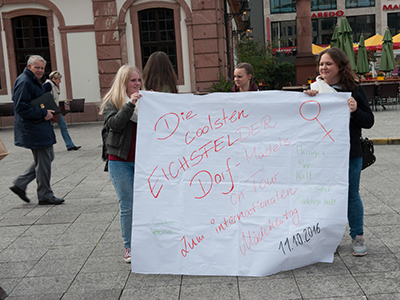 MARADO
Die
coolsten
EICHSFELDER
Dorf Mädels
on Tour
zum "internationalen
Mädchentag
11.10.2016